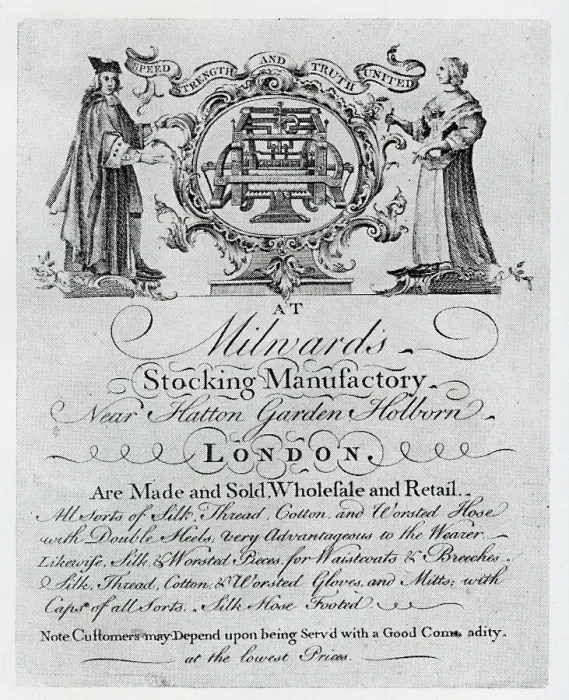 SPEED STRENGTH AND TRUTH UNITED
AT
Milward's
Stocking Manufactory
Near Hatton Garden Holborn
LONDON.
Are Made and Sold, Wholeſale and Retail.
All Sorts of Silk, Thread, Cotton, and Worsted Hose
with Double Heels, very Advantageous to the Wearer
Likewiſe, Silk & Worsted Pieces, for Waistcoats & Breeches.
Silk, Thread, Cotton, & Worsted Gloves, and Mitts; with
Caps of all Sorts. Silk Hose Footed
Note, Cuſtomers may Depend upon being Serv'd with a Good Com adity.
at the lowest Prices.